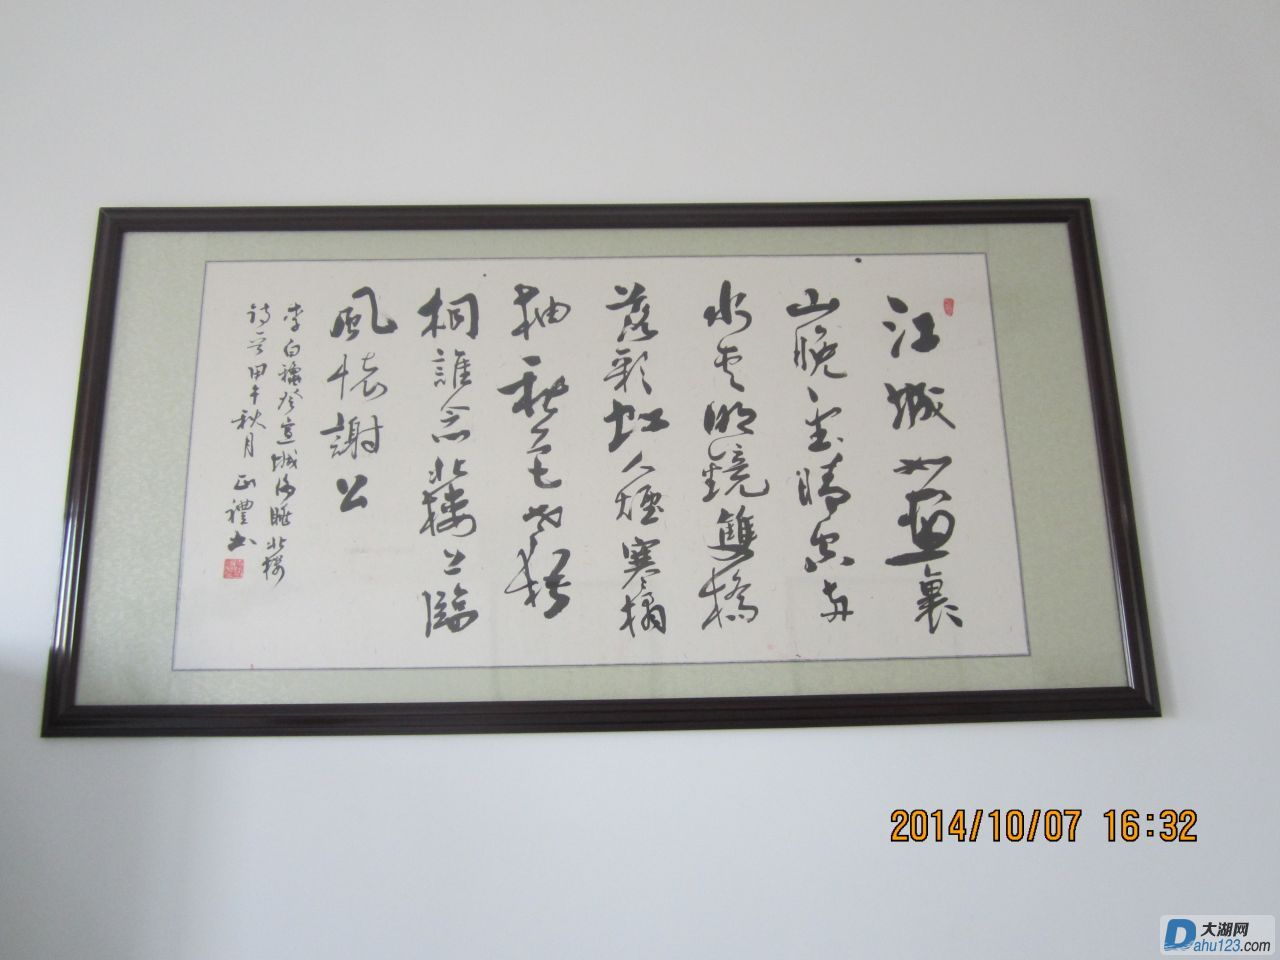 江城如畫裏
山晚望晴空兩
水夾明鏡雙橋
落彩虹人煙寒橘
柚秋色老梧
桐誰念北樓上臨
風懷謝公
李白穐登宣城謝脁北樓
詩一首甲午秋月 正禮書
2014/10/07 16:32
大湖网
Dahu123.com